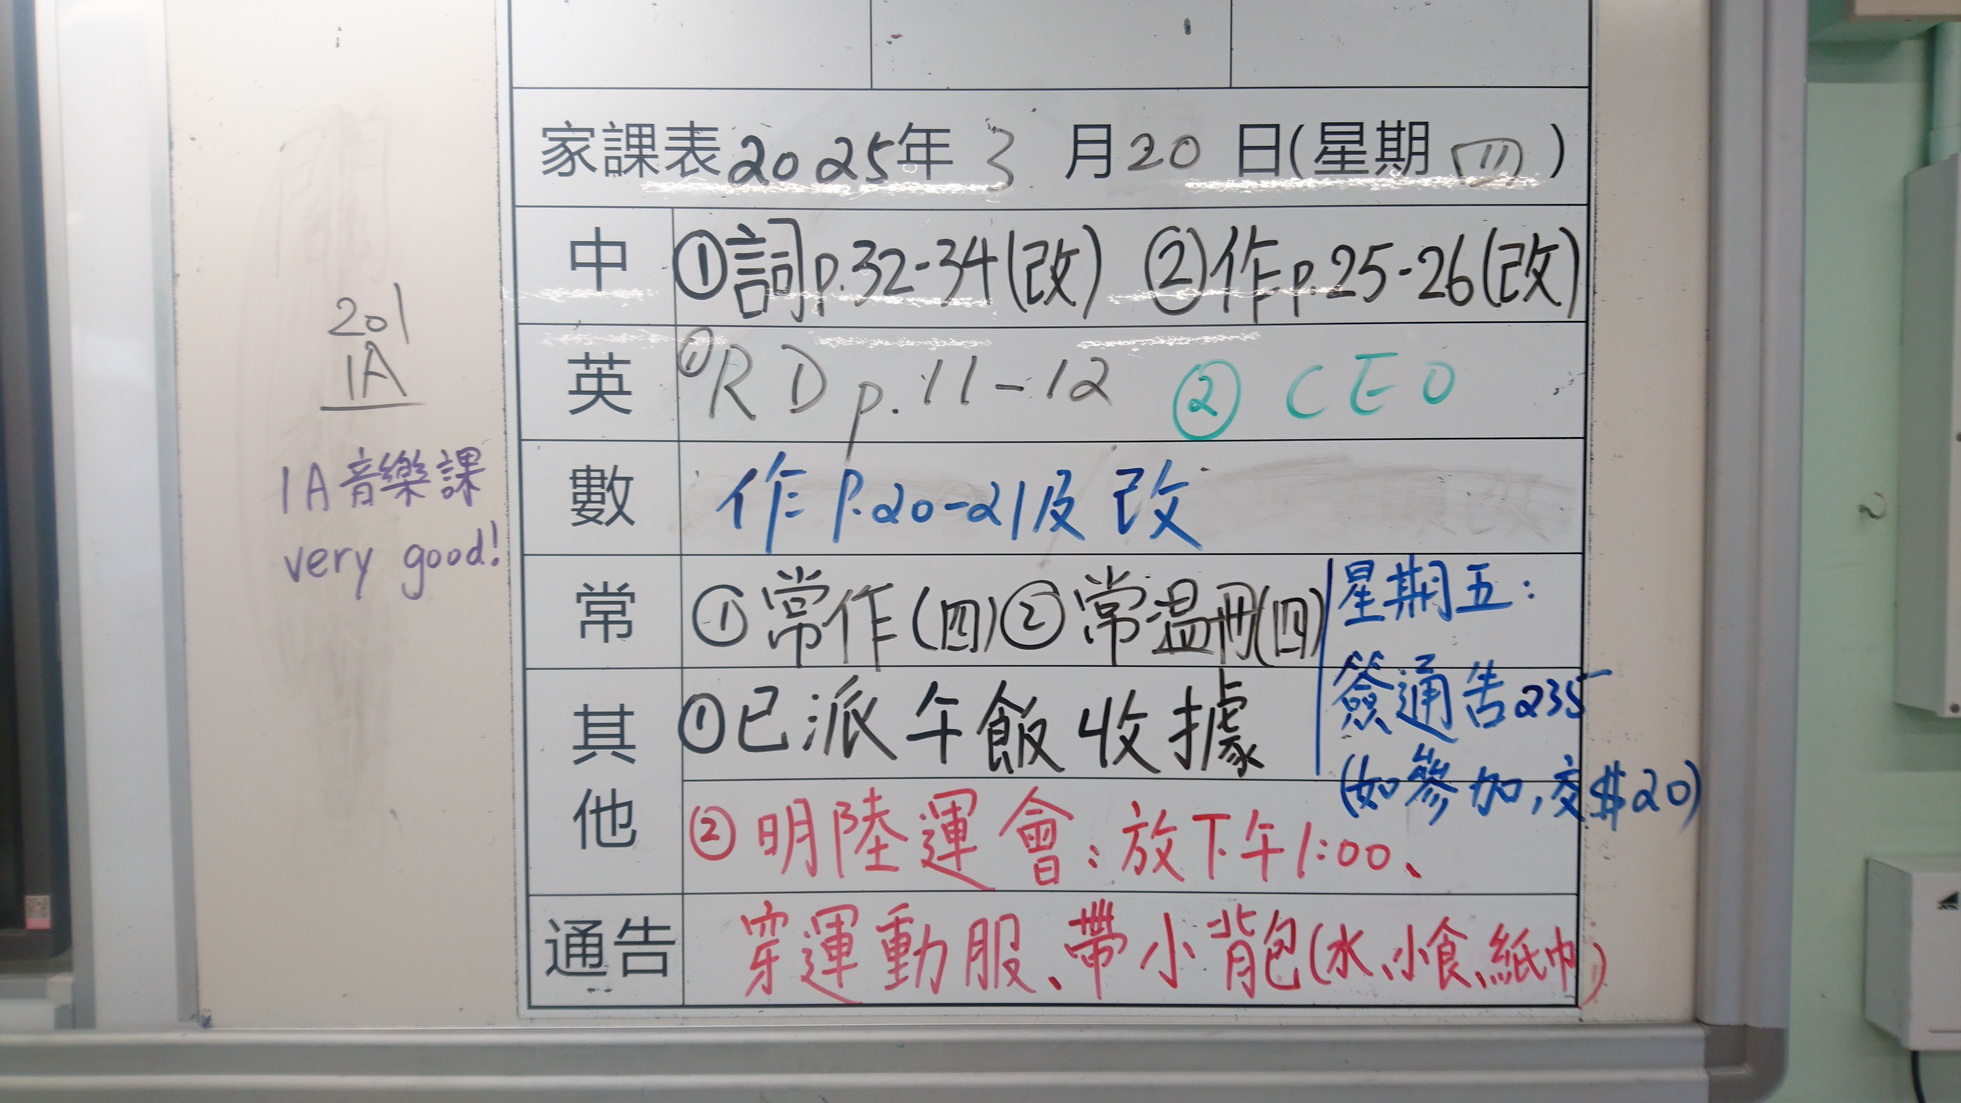 家課表2025年 3 月20 日(星期 四)
中 ①詞p.32-34(改) ②作p.25-26(改)
英 ①RD p.11-12 ② CEO
數 作P.20-21及改
常 ①常作(四)②常溫冊(四)
星期五:
簽通告235
(如參加,交$20)
其他 ①已派午飯收據
②明陸運會:放下午1:00、
通告 穿運動服、帶小背包(水、小食、紙巾)
201
1A
1A音樂課
very good!